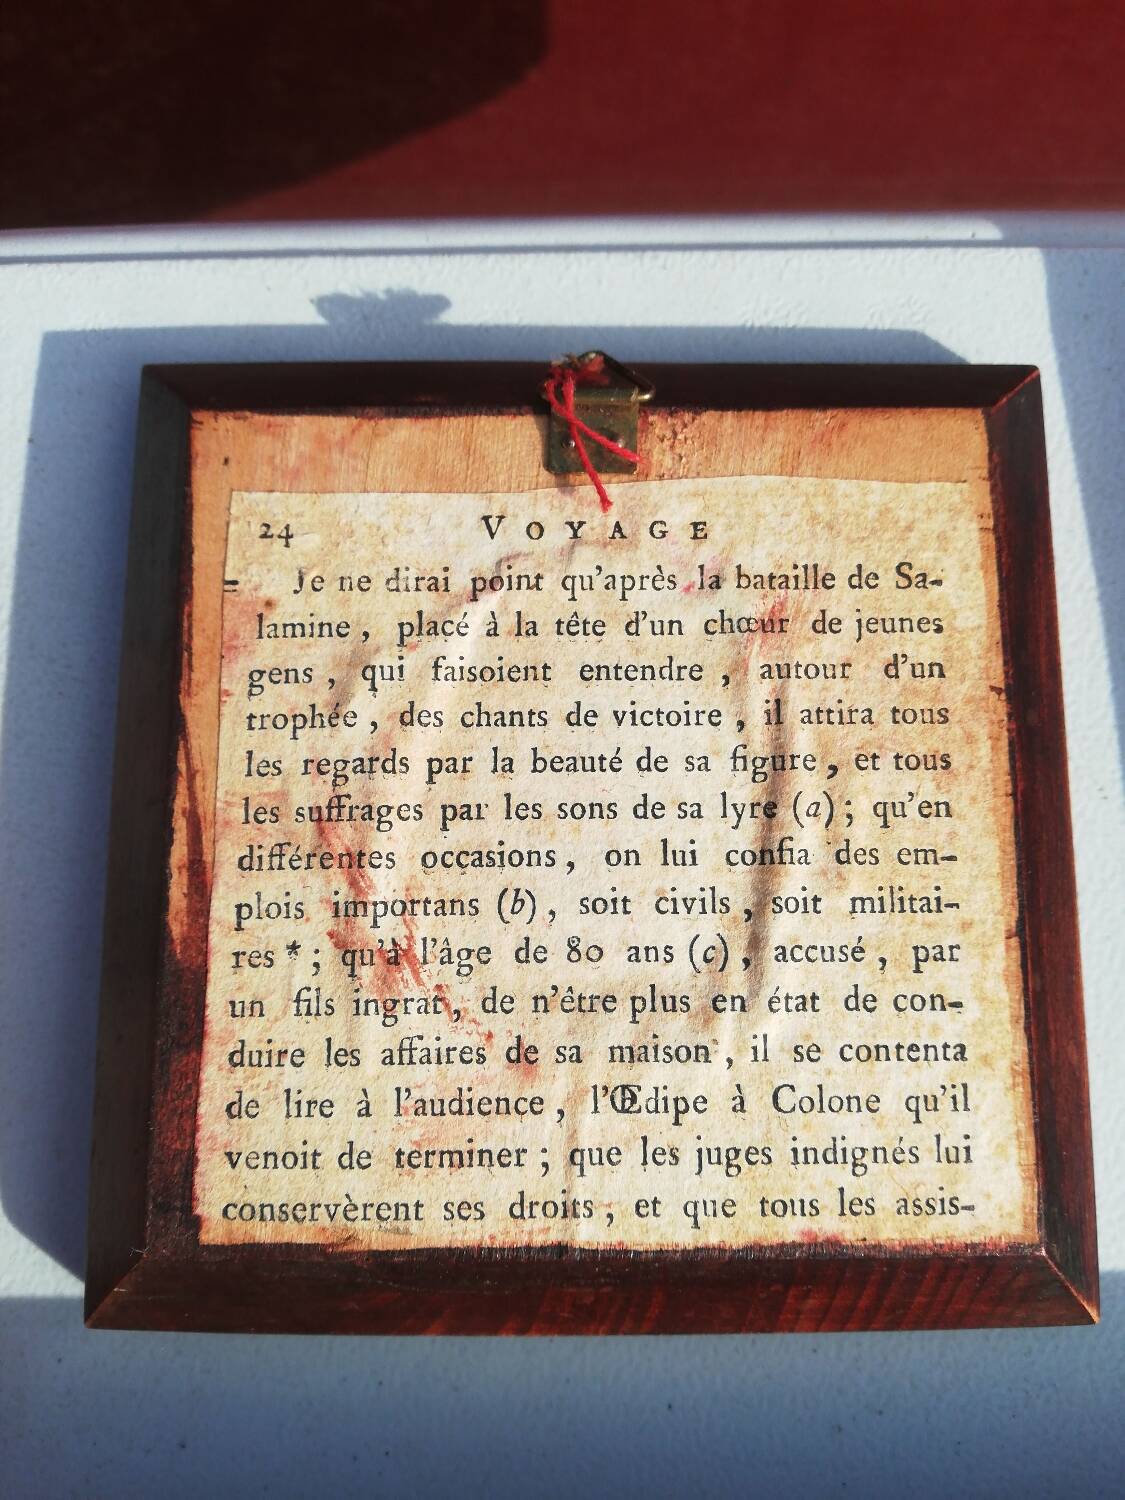 24 VOYAGE
Je ne dirai point qu'après la bataille de Sa-
lamine, placé à la tête d'un chœur de jeunes
gens, qui faisoient entendre, autour d'un
trophée, des chants de victoire, il attira tous
les regards par la beauté de sa figure, et tous
les suffrages par les sons de sa lyre (a); qu'en
différentes occasions, on lui confia des em-
plois importans (b), soit civils, soit militai-
res *; qu'à l'âge de 80 ans (c), accusé, par
un fils ingrat, de n'être plus en état de con-
duire les affaires de sa maison, il se contenta
de lire à l'audience, l'Œdipe à Colone qu'il
venoit de terminer; que les juges indignés lui
conservèrent ses droits, et que tous les assis-